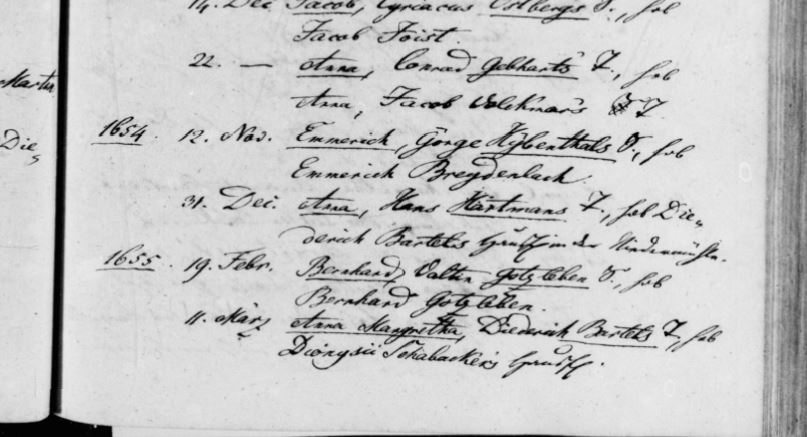 14. Dec Jacob, Cyriacus Ostbergs S., hob
Jacob Joist.
22. — Anna, Conrad Gebharts T., hob
Martin
Anna, Jacob Volckmars T.
1654. 12. Nov. Emmerich, Görge Hybenthals S., hob
Die
Emmerich Breydenbach.
31. Dec. Anna, Hans Hartmans T., hob Die„
derich Bartels in der Niedermühle.
1655. 19. Febr. Bernhard, Valtin Gotzleben S., hob
Bernhard Gotzleben.
11. März Anna Margretha, Diederich Bartels T., hob
Dionysii Schabacker's